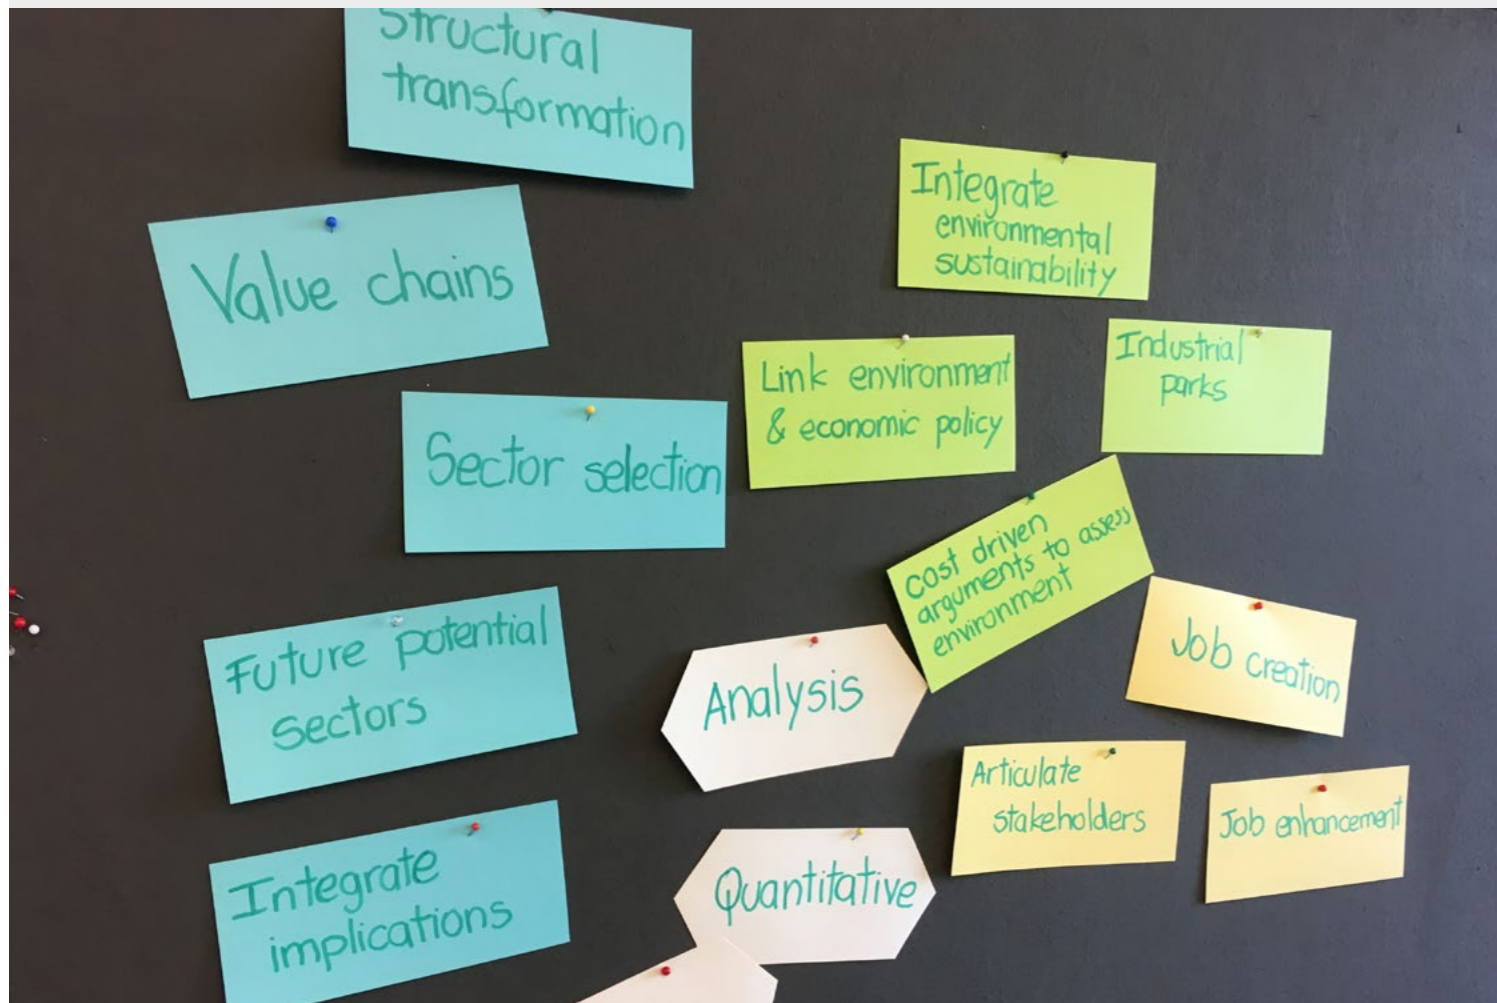 Structural
transformation
Value chains
Sector selection
Future potential
sectors
Integrate
implications
Integrate
environmental
sustainability
Link environment
& economic policy
Industrial
parks
cost driven
arguments to assess
environment
Analysis
Quantitative
Job creation
Articulate
stakeholders
Job enhancement